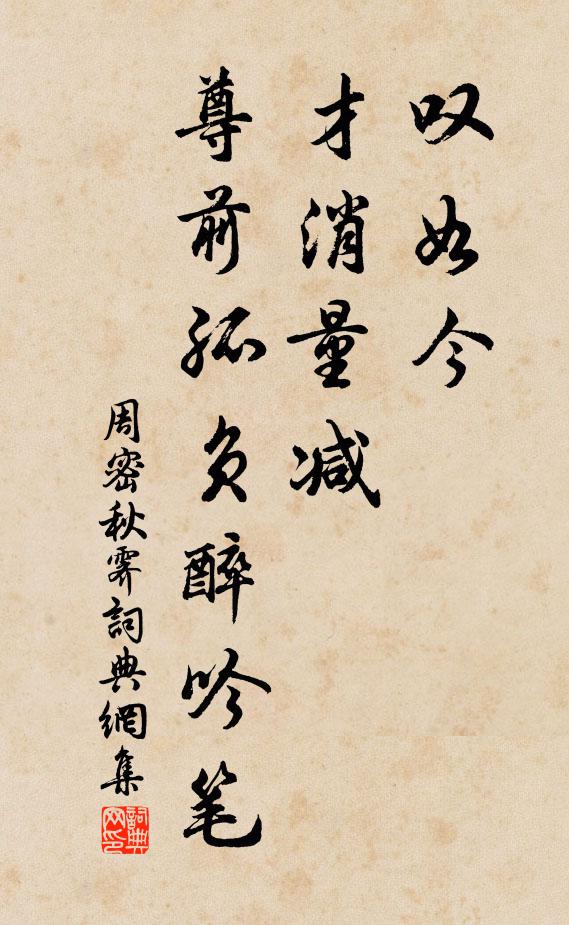 叹如今
才消量减
尊前孤负醉吟笔
周密秋霁詞典網集
詞典网印